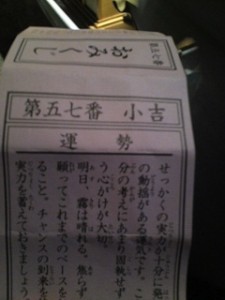 おみくじ
第五七番 小吉
運勢
せっかくの実力が十分に発
の動揺がある運気です。こ
分の考えにあまり固執せず
う心がけが大切。
明日、霧は晴れる。焦らず
願ってこれまでのペースを
ること。チャンスの到来を
実力を蓄えておきましょう。